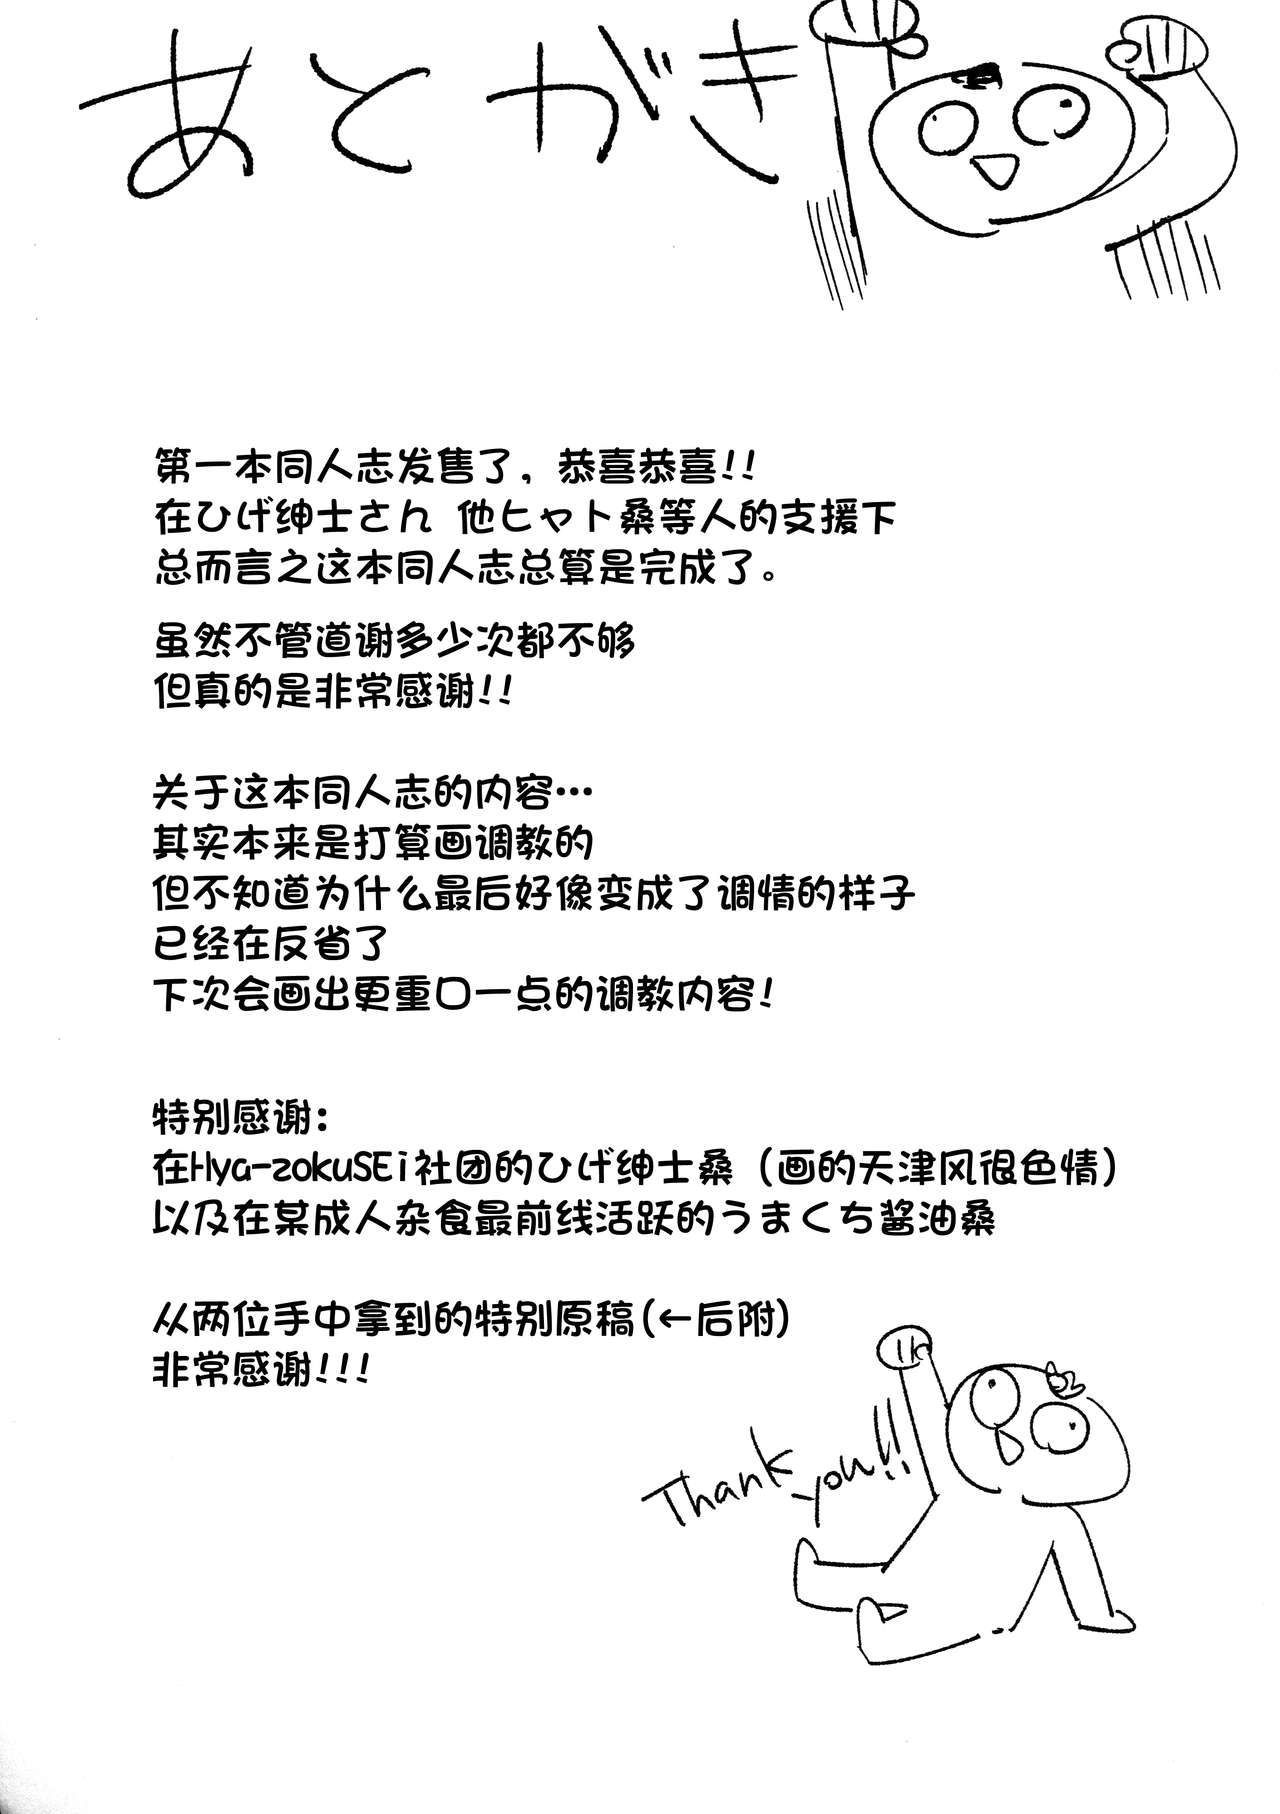 あとがき
第一本同人志发售了，恭喜恭喜!!
在ひげ绅士さん 他ヒャト桑等人的支援下
总而言之这本同人志总算是完成了。
虽然不管道谢多少次都不够
但真的是非常感谢!!
关于这本同人志的内容…
其实本来是打算画调教的
但不知道为什么最后好像变成了调情的样子
已经在反省了
下次会画出更重口一点的调教内容!
特别感谢:
在Hya-zokuSEi社团的ひげ绅士桑（画的天津风很色情）
以及在某成人杂食最前线活跃的うまくち酱油桑
从两位手中拿到的特别原稿(←后附)
非常感谢!!!
Thank you!!